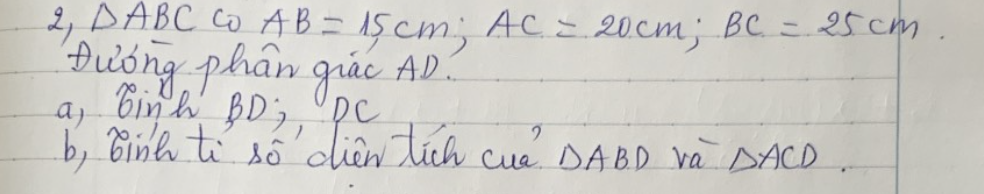 2, ΔABC có AB = 15cm; AC = 20cm; BC = 25cm.
Đường phân giác AD.
a, Tính BD; DC
b, Tính tỉ số diện tích của ΔABD và ΔACD.